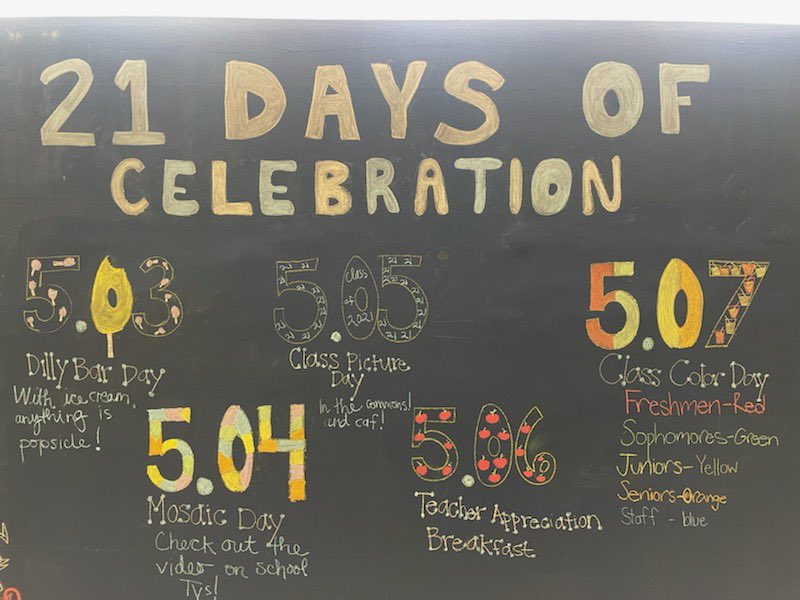 21 DAYS OF
CELEBRATION
5.03
Dilly Bar Day
With ice cream,
anything is
popsicle!
5.04
Mosaic Day
Check out the
video on school
TVs!
5.05
Class
of
2021
Class Picture
Day
In the commons!
and caf!
5.06
Teacher Appreciation
Breakfast
5.07
Class Color Day
Freshmen-Red
Sophomores-Green
Juniors-Yellow
Seniors-Orange
Staff - blue